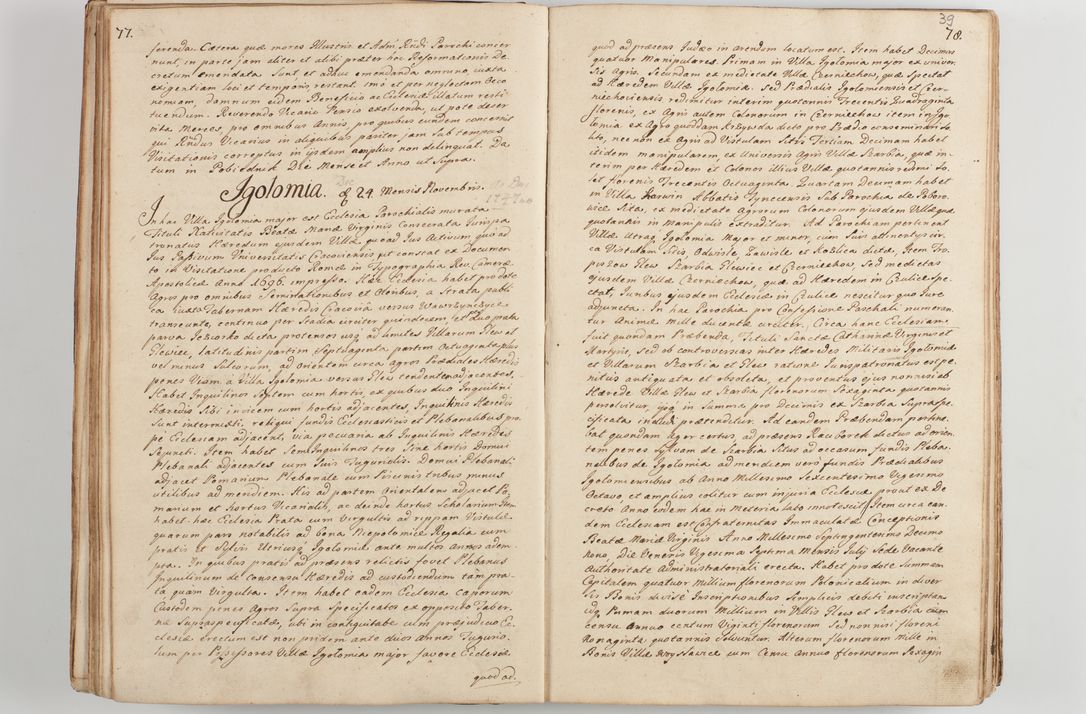 77.
ferenda. Cætera quæ mores Illustris et Adm Rndi Parochi concer
nunt, in parte jam aliter et alibi præter hoc Reformationis De
cretum emendata sunt et adhuc emendanda omnino, juxta
exigentiam loci et temporis restant. Imo et per neglectam Oeco
nomiam, damnum eidem Beneficio ac Ecclesiæ illatum resti
tuendum. Reverendo Vicario Pensio exolvenda, ut pote deser
vita Merces, pro omnibus Annis, pro quibus eundem concernit
qui Rndus Vicarius in aliquibus pariter jam sub tempus
Visitationis correptus in ijsdem amplius non delinquat. Da
tum in Pobiednik Die Mense et Anno ut supra.
Igolomia. 24 Mensis Novembris.
In hac Villa Igolomia major est Ecclesia Parochialis murata
Tituli Nativitatis Beatæ Mariæ Virginis Consecrata Jurispa
tronatus Hæredum ejusdem Villæ, quoad Jus Activum, quoad
Jus Passivum Universitatis Cracoviensis, ut constat ex Documen
to in Visitatione producto Romæ in Typographia Rev. Cameræ
Apostolicæ Anno 1696. impresso. Hæc Ecclesia habet pro dote
Agros pro omnibus Seminationibus et Oleribus, a Strata publi
ca juxta Tabernam Hæredis Cracoviâ versus Wawrzynczyce
transeunte, continuo per Stadia circiter quindecim, et duo prata
parva Jeziorko dicta protensos usq ad limites Villarum Hew et
Glewiec, latitudinis partim septuaginta partim Octuaginta plus
vel minus Sulcorum, ad orientem circa agros Prædiales Hæredis
penes Viam, a Villa Igolomia versus Hew tendentem adjacentes.
Habet Inquilinos Septem cum hortis, ex quibus duo Inquilini
Hæredis sibi invicem cum hortis adjacentes, Inquilinis Hæredis
sunt intermixti, reliqui fundis Ecclesiasticis et Plebanalibus pro
pe Ecclesiam adjacent, via pecuaria ab Inquilinis Hæredis
Sejuncti. Item habet Semi Inquilinos tres sine hortis Domui
Plebanali adjacentes cum suis Tuguriolis. Domui Plebanali
adjacet Pomarium Plebanale cum Piscinis tribus minus
utilibus ad meridiem. His ad partem Orientalem adjacet Po
marium et hortus Vicarialis, ac deinde hortus Scholarium. Item
habet hæc Ecclesia Prata cum virgultis ad rippam Vistulæ
quarum pars notabilis ad bona Niepolomice Regalia cum
pratis et sylvis utriusq Igolomiæ ante multos annos adem
pta. In quibus pratis ad præsens relictis fovet Plebanus
Inquilinum de Consensu Hæredis ad custodiendum tam pra
ta quam Virgulta. Item habet eadem Ecclesia caponum
Custodem penes Agros Supra Specificatos ex opposito Taber
næ Supraspecificatæ, ubi in contiguitate cum præjudicio Ec
clesiæ erectum est non pridem ante duos Annos Tugurio
lum per Possessores Villæ Igolomia major favore Ecclesiæ
quod ad.
39
78.
quod ad præsens Judæo in arendam locatum est. Item habet Decimas
quatuor Manipulares. Primam in Villa Igolomia major ex univer
sis Agris. Secundam ex medietate Villæ Czerniechow, quæ Spectat
ad Hæredem Villæ Igolomia. Sed Prædialis Igolomiensis et Czer
niechoviensis redimitur interim quotannis Trecentis Quadraginta
florenis, ex Agris autem Colonorum in Czerniechow item in Igo
lomia ex Agro quodam Krzywda dicto pro Prædio conseminando
lito, nec non ex Agris ad Vistulam Sitis. Tertiam Decimam habet
itidem manipularem ex Universis Agris Villæ Skarbia, quæ in
terim per Hæredem et Colonos illius Villæ quotannis redimi so
let florenis Trecentis Octuaginta. Quartam Decimam habet
in Villa Karwin Abbatis Tynecensis Sub Parochia de Poboro
wice Sita, ex medietate Agrorum Colonorum ejusdem Villæ quæ
quotannis in manipulis extraditur. Ad Parochiam pertinent
Villæ utraq Igolomia Major et minor, cum suis attinentijs cir
ca Vistulam Sitis, Odwisle, Zawisle et Koźlica dictæ. Item Tro
piszow Hew Skarbia Glewiec et Czerniechow, Sed medietas
ejusdem Villæ Czerniechow, quæ ad Hæredem in Czulice spe
ctat, Juribus ejusdem Ecclesiæ in Czulice nescitur quo Jure
adjuncta. In hac Parochia pro Confessione Paschali numeran
tur Animæ mille ducentæ circiter. Circa hanc Ecclesiam
fuit quondam Præbenda, Tituli Sanctæ Catharinæ Virginis et
Martyris, Sed ob controversias inter Hæredes Militaris Igolomiæ
et Villarum Skarbia et Hew ratione Jurispatronatus est pe
nitus antiquata et obsoleta, et proventus ejus nonnisi ab
Hærede Villæ Hew et Skarbia florenorum Sexaginta quotannis
persolvitur, qui in Summa pro Decimis ex Skarbia Supraspe
cificata inclusi prætenditur. Ad eandem Præbendam pertine
bat quondam Ager certus, ad præsens Raciborek dictus ad orien
tem penes sylvam de Skarbia Situs ad occasum fundis Pleba
nalibus de Igolomia ad meridiem vero fundis Prædialibus
Igolomiensibus ab Anno Millesimo Sexcentesimo Vigesimo
Octavo, et amplius colitur cum injuria Ecclesiæ prout ex De
creto Anno eodem hac in Materia lato innotescit. Item circa ean
dem Ecclesiam est Confraternitas Immaculatæ Conceptionis
Beatæ Mariæ Virginis Anno Millesimo Septingentesimo Decimo
nono, Die Veneris Vigesima Septima Mensis Julij Sede Vacante
Authoritate Administratoriali erecta. Habet pro dote Summam
Capitalem quatuor Millium florenorum Polonicalium in diver
sis Bonis divisè Inscriptionibus Simplicis debiti inscriptam
uq Primam duorum Millium in Villis Hew et Skarbia cum
censu Annuo centum Viginti florenorum Sed non nisi floreni
Nonaginta quotannis solvuntur. Alteram florenorum Mille in
Bonis Villæ Wyslawice cum Censu Annuo florenorum Sexagin